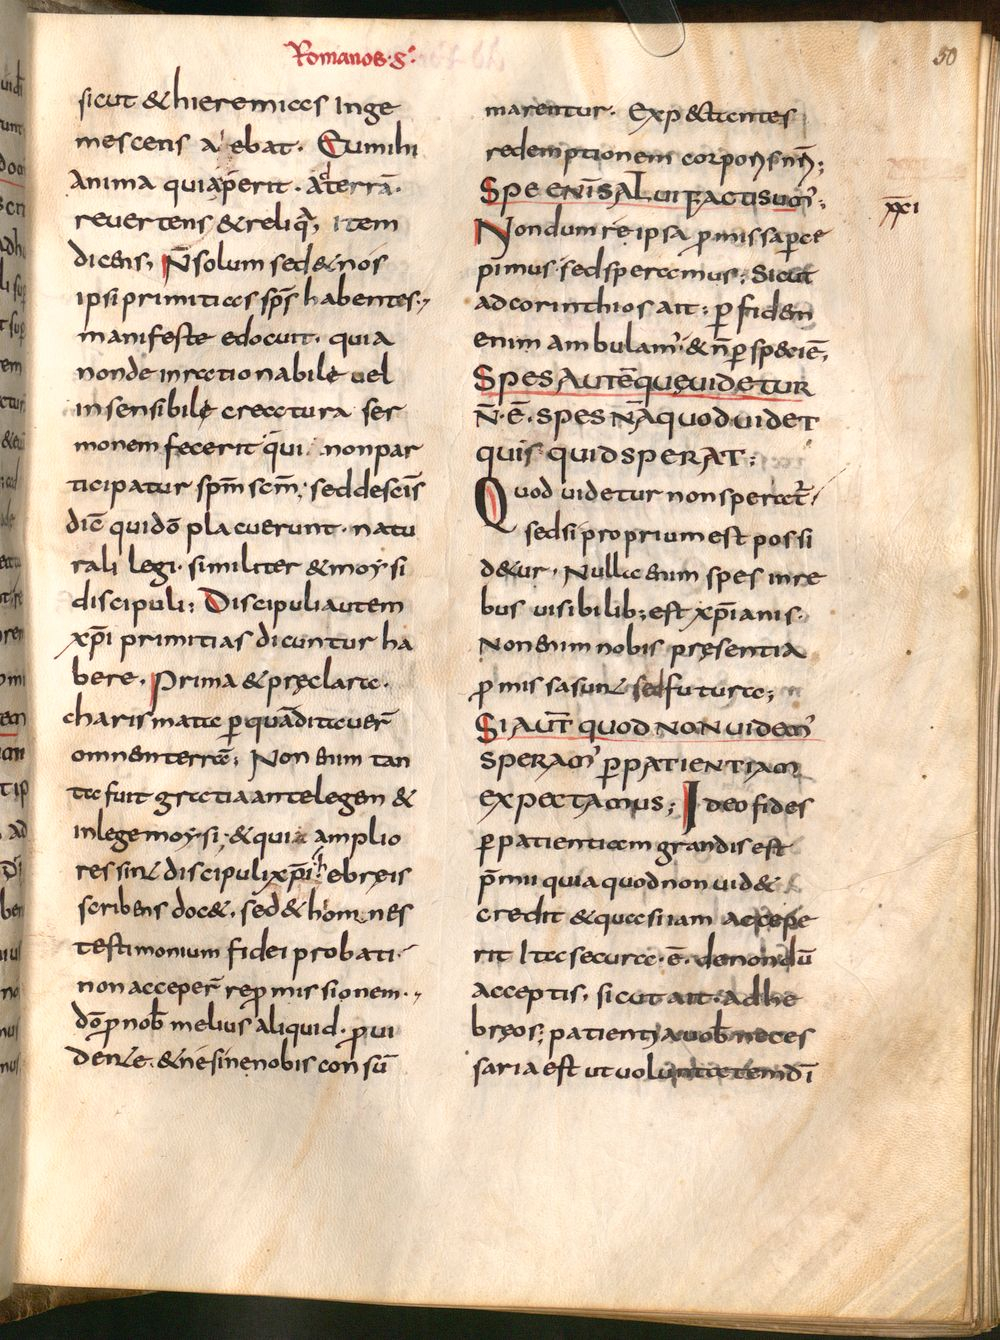 Romanos · g·
50
sicut & hieremiccs Inge
mescens a ebat · Eumihi
anima quiap̄erit · a terrā ·
reuertens & reliq̄, item
dicens, N̄ solum sed & nos
ipsi primiticcs sp̄s habentes ·,
manifeste edocuit · quia
nonde inrcctionabile uel
insensibilę crecctura ser
monem fecerit qui nonpar
ticipatur sp̄m scm̄, sed descīs
diē quidō placuerunt · natu
rali legi · similiter & moysi
discipuli; Discipuli autem
xp̄i primitias dicuntur ha
bere · Prima & pręclarcc ·
charismatcc p̄ quā dittcc uer̄
omnem terrcc̄; Non enim tan
tcc fuit grcctia ante legem &
inlege moysi, & quia amplio
res sint discipuli xp̄i hebreis
scribens doc&, sed & homnes
testimonium fidei probati ·
non acceper̄ rep̄missionem ·,
dō p̄nob̄ melius aliquid · p̄ui
dente · & nesine nobis consū
marentur · Exp&tcntes
redemptionem corporis nr̄i;
Spe enī salui factisum';
xxi
Nondum re ipsa p̄missa p̄ce
pimus sed spercemus; Sicut
adcorinthios ait; p̄ fidem
enim ambulam' · & n̄ p̄ speciē,
Spes autē quę uidetur
n̄ · ē · spes · Nā quod uidet
quis quid sperat;
Quod uidetur non spercct̄,
sed si proprium est possi
d&ur · Nullcc enim spes inre
bus uisibilib; est xp̄ianis ·
Non enim nobis pręsentia
p̄missa sunt sed futurcc;
Si aut̄ quod non uidem'
speram' p̄ patientiam
expectamus; Ideo fides
p̄ patienticcm grandis est
p̄mii quia quod non uid&
credit & quccsi iam accepe
rit ltcc securcc · ē · de nondū
acceptis, sicut ait · adhe
bręos; patientia uob̄ neces
saria est ut uoluntcctem dī